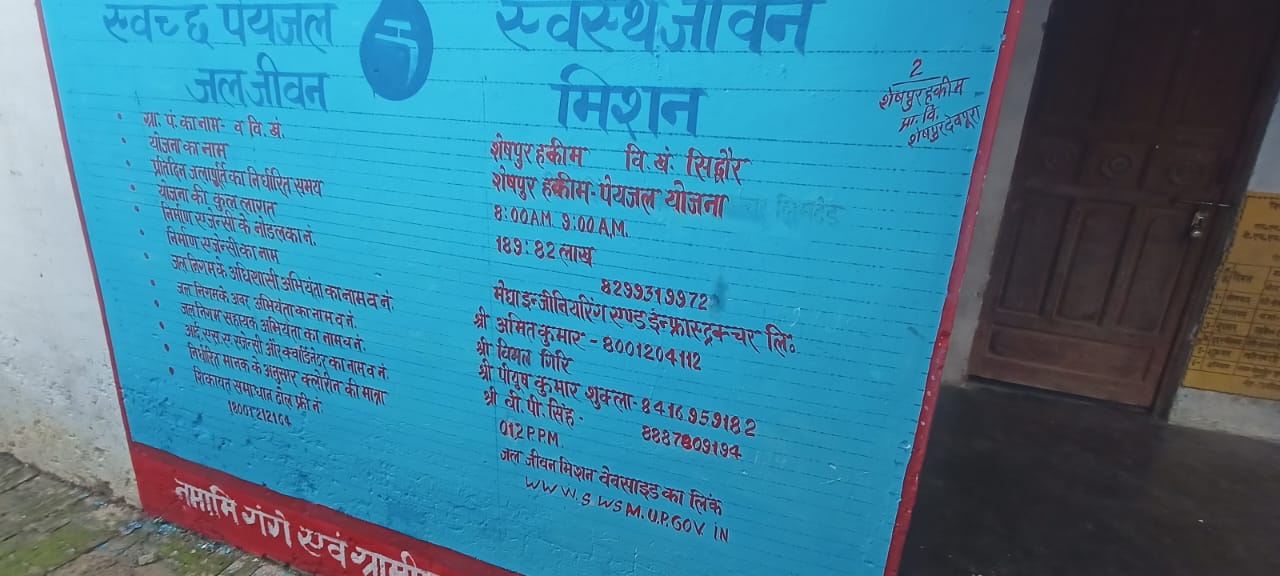 स्वच्छ पेयजल स्वस्थ जीवन
जल जीवन मिशन
2
शेषपुर हकीम
प्रा. वि.
शेषपुर देवपूरा
ग्रा. पं. का नाम- व वि.खं. शेषपुर हकीम वि.खं. सिद्धौर
योजना का नाम शेषपुर हकीम-पेयजल योजना
प्रतिदिन जलापूर्ति का निर्धारित समय 8:00 A.M. 9:00 A.M.
योजना की कुल लागत 189:82 लाख
निर्माण एजेन्सी के नोडल का नं. 8299319972
निर्माण एजेन्सी का नाम मेघा इन्जीनियरिंग एण्ड इन्फ्रास्ट्रक्चर लि०
जल निगम के अधिशासी अभियंता का नाम व नं. श्री अमित कुमार - 8001204112
जल निगम के अवर अभियंता का नाम व नं. श्री विमल गिरि
जल निगम सहायक अभियंता का नाम व नं. श्री पीयुष कुमार शुक्ला- 8416959182
आई.एस.ए. एजेन्सी और क्वार्डिनेटर का नाम व नं. श्री वी. पी. सिंह. 8887809194
निर्धारित मानक के अनुसार क्लोरीन की मात्रा 012 P.P.M.
शिकायत समाधान टोल फ्री नं.
18001212164
जल जीवन मिशन वेबसाइड का लिंक
WWW.SWSM.UP.GOV.IN
नमामि गंगे एवं ग्रामी